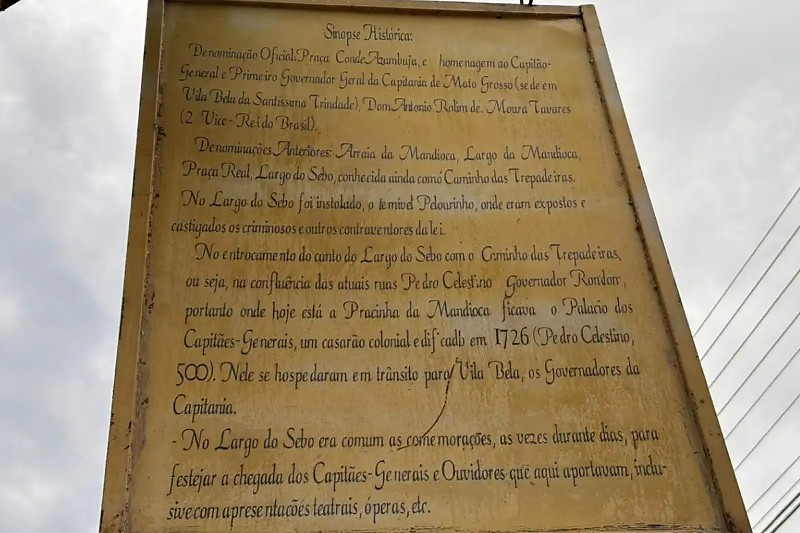 Sinopse Histórica:
Denominação Oficial: Praça Conde Azambuja, e homenagem ao Capitão-
General e Primeiro Governador Geral da Capitania de Mato Grosso (sede em
Vila Bela da Santissima Trindade), Dom Antonio Rolim de Moura Tavares
(2 Vice-Rei do Brasil).
Denominações Anteriores: Arraia da Mandioca, Largo da Mandioca,
Praça Real, Largo do Sebo, conhecida ainda como Caminho das Trepadeiras.
No Largo do Sebo foi instolado, o temivel Pelourinho, onde eram expostos e
castigados os criminosos e outros contraventores da lei.
No entrocamento do canto do Largo do Sebo com o Caminho das Trepadeiras,
ou seja, na confluência das atuais ruas Pedro Celestino Governador Rondon,
portanto onde hoje está a Pracinha da Mandioca ficava o Palacio dos
Capitães-Generais, um casarão colonial edificado em 1726 (Pedro Celestino,
500). Nele se hospedaram em trânsito para Vila Bela, os Governadores da
Capitania.
- No Largo do Sebo era comum as comemorações, as vezes durante dias, para
festejar a chegada dos Capitães-Generais e Ouvidores que aqui aportavam, inclu-
sive com apresentações teatrais, óperas, etc.